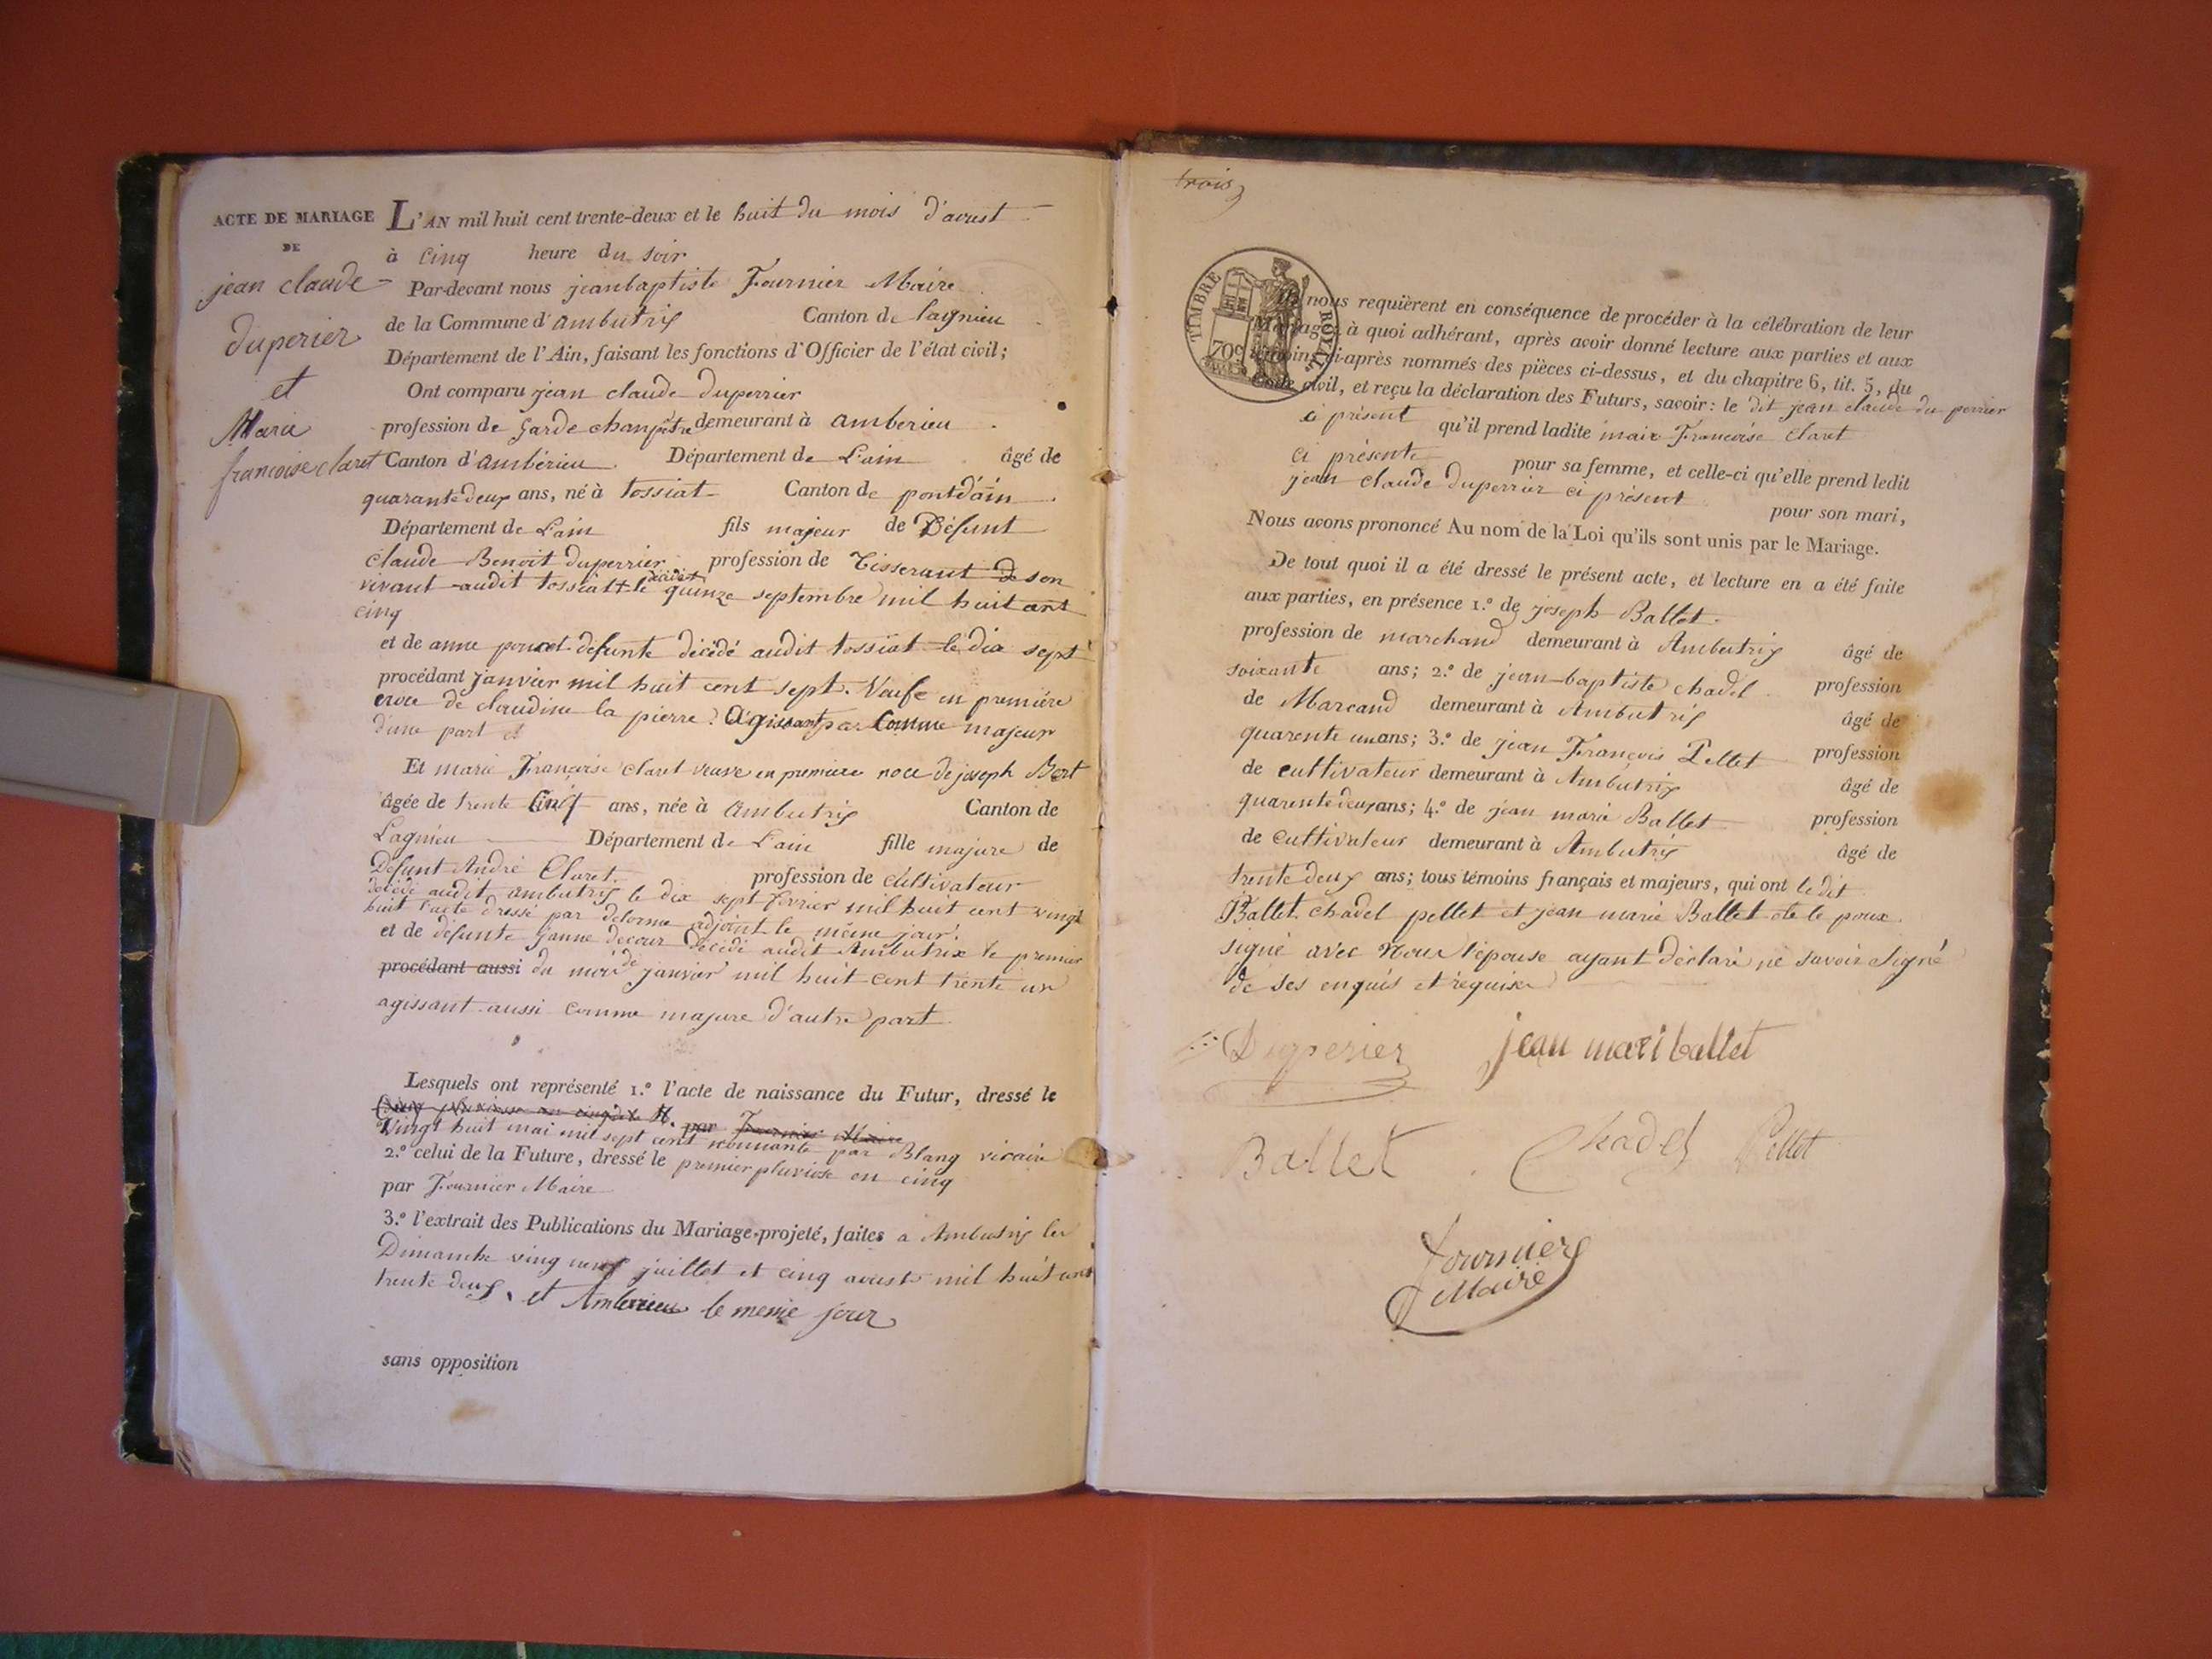 ACTE DE MARIAGE
DE
jean claude
duperier
et
Marie
francoise claret
L'AN mil huit cent trente-deux et le huit du mois d'aoust
à cinq heure du soir
Par-devant nous jeanbaptiste Fournier Maire
de la Commune d'ambutrix Canton de lagnieu
Département de l'Ain, faisant les fonctions d'Officier de l'état civil;
Ont comparu jean claude duperrier
profession de garde chanpêtre demeurant à amberieu
Canton d'ambérieu Département de Lain âgé de
quarante deux ans, né à tossiat Canton de pontdain
Département de Lain fils majeur de Défunt
claude Benoit duperrier profession de tisserant de son
vivant audit tossiat décédé le quinze septembre mil huit cent
cinq
et de anne poncet defunte décédé audit tossiat le dix sept
procédant janvier mil huit cent sept. Veufe en première
noce de claudine la pierre. Agissant comme majeur
d'une part et
Et marie Françoise claret veuve en premiere noce de joseph Bert
âgée de trente cinq ans, née à Ambutrix Canton de
Lagnieu Département de Lain fille majure de
Défunt André Claret. profession de cultivateur
décédé audit ambutrix le dix sept février mil huit cent vingt
huit l'acte dressé par delorme adjoint le même jour.
et de défunte janne decour décédé audit Ambutrix le premier
procédant aussi du mois de janvier mil huit cent trente un
agissant aussi comme majure d'autre part
Lesquels ont représenté 1.º l'acte de naissance du Futur, dressé le
par Fournier Maire
vingt huit mai mil sept cent nonnante par Blang vicaire
2.º celui de la Future, dressé le premier pluviose en cinq
par Fournier Maire
3.º l'extrait des Publications du Mariage projeté, faites a Ambutrix les
Dimanche ving neuf juillet et cinq aoust mil huit cent
trente deux, et Amberieu le meme jour
sans opposition
trois
TIMBRE ROYAL
70c
Ils nous requièrent en conséquence de procéder à la célébration de leur
Mariage, à quoi adhérant, après avoir donné lecture aux parties et aux
témoins ci-après nommés des pièces ci-dessus, et du chapitre 6, tit. 5, du
Code civil, et reçu la déclaration des Futurs, savoir: le dit jean claude du perrier
ci présent qu'il prend ladite marie Francoise Claret
ci présente pour sa femme, et celle-ci qu'elle prend ledit
jean claude duperrier ci présent pour son mari,
Nous avons prononcé Au nom de la Loi qu'ils sont unis par le Mariage.
De tout quoi il a été dressé le présent acte, et lecture en a été faite
aux parties, en présence 1.º de joseph Ballet
profession de marchand demeurant à Ambutrix âgé de
soixante ans; 2.º de jean-baptiste chadel profession
de Marcand demeurant à Ambutrix âgé de
quarente un ans; 3.º de jean François Pellet profession
de cultivateur demeurant à Ambutrix âgé de
quarente deux ans; 4.º de jean marie Ballet profession
de cultivateur demeurant à Ambutrix âgé de
trente deux ans; tous témoins français et majeurs, qui ont le dit
Ballet. chadel pellet et jean marie Ballet et le poux
signé avec Nous l'épouse ayant déclaré ne savoir signé
de ses enquis et requise
Duperier jean mari ballet
Ballet Chadel Pellet
Fournier
Maire